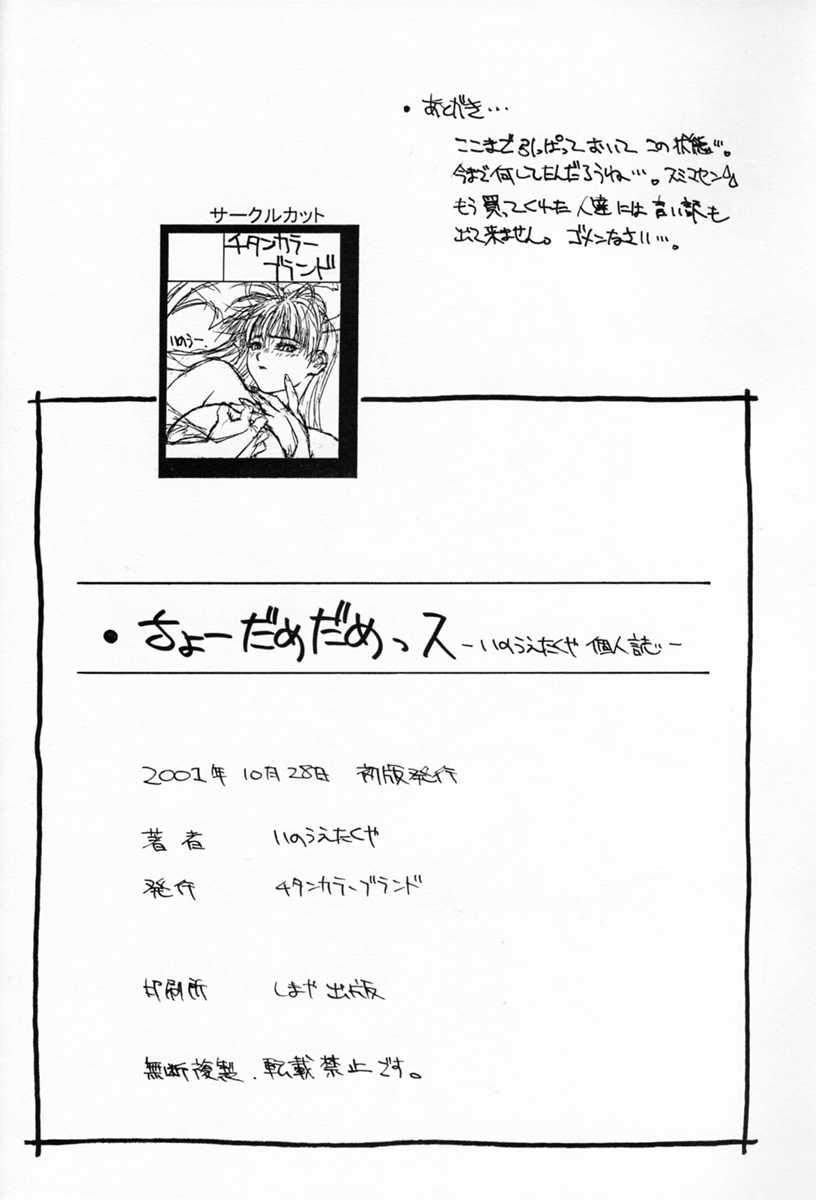 ・あとがき…
ここまで引っぱっておいて この状態…。
今まで何してたんだろうね…。スミマセン
もう買ってくれた人達には言い訳も
出て来ません。ゴメンなさい…。
サークルカット
チタンカラー
ブランド
いのうー.
・ちょーだめだめっス －いのうえたくや 個人誌－
2001年 10月28日 初版発行
著者 いのうえたくや
発行 チタンカラーブランド
印刷所 しまや出版
無断複製.転載禁止です。